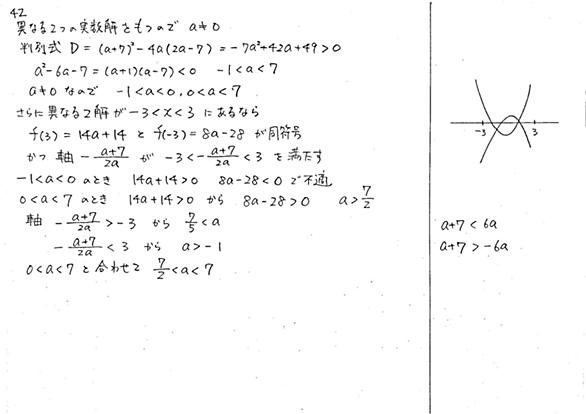 42
異なる2つの実数解をもつので a≠0
判別式 D=(a+7)²-4a(2a-7)=-7a²+42a+49>0
a²-6a-7=(a+1)(a-7)<0 -1<a<7
a≠0 なので -1<a<0, 0<a<7
さらに異なる2解が-3<x<3 にあるなら
f(3)=14a+14 と f(-3)=8a-28 が同符号
かつ 軸 -\frac{a+7}{2a} が -3<-\frac{a+7}{2a}<3 を満たす
-1<a<0 のとき 14a+14>0 8a-28<0 で不適
0<a<7 のとき 14a+14>0 から 8a-28>0 a>\frac{7}{2}
軸 -\frac{a+7}{2a}>-3 から \frac{7}{5}<a
-\frac{a+7}{2a}<3 から a>-1
0<a<7 と合わせて \frac{7}{2}<a<7
-3 3
a+7<6a
a+7>-6a